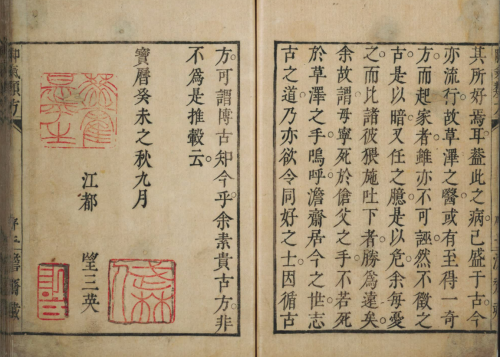 其所好焉耳蓋此之病已盛于古今
亦流行故草澤之醫或有至得一奇
方而起家者雖亦不可誣然不徵之
古是以暗又任之臆是以危余每憂
之而比諸彼猥施吐下者勝爲遠矣
余故謂毋寧死於傖父之手不若死
於草澤之手嗚呼澹齋居今之世志
古之道乃亦欲令同好之士因循古
方可謂博古知今乎余素貴古方非
不爲是推轂云
寶曆癸未之秋九月
江都 望三英